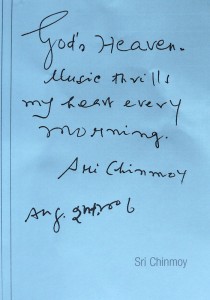 God's Heaven-
Music thrills
my heart every
morning.
Sri Chinmoy
Aug. 2nd 2006
Sri Chinmoy